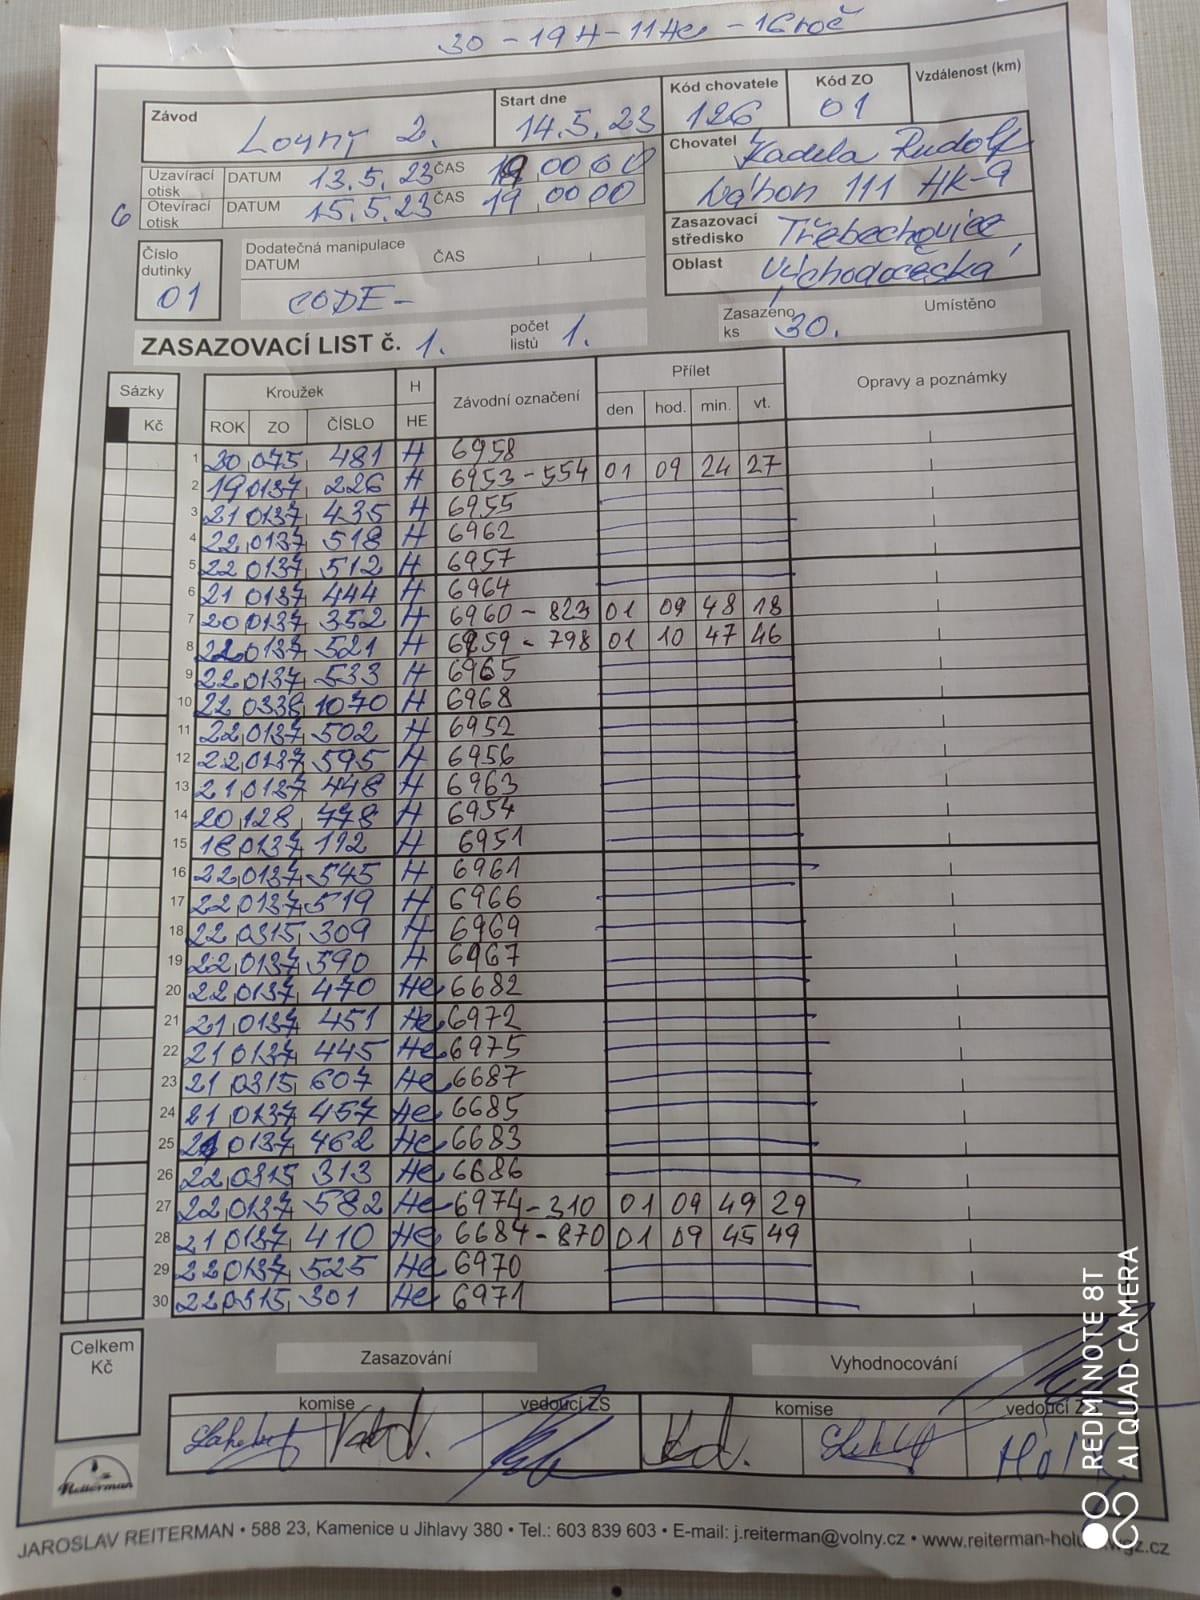 30 - 19H - 11He - 1 6 roč
Závod Louny 2. Start dne 14.5.23 Kód chovatele 126 Kód ZO 01 Vzdálenost (km)
Uzavírací otisk DATUM 13.5.23 ČAS 19 00 00
Otevírací otisk DATUM 15.5.23 ČAS 19 00 00
6
Chovatel Kadela Rudolf
Náhon 111 HK-9
Zasazovací středisko Třebechovice
Oblast Východočeská
Číslo dutinky 01
Dodatečná manipulace DATUM ČAS
CODE-
ZASAZOVACÍ LIST č. 1. počet listů 1. Zasazeno ks 30. Umístěno
Sázky Kroužek H Závodní označení Přílet Opravy a poznámky
Kč ROK ZO ČÍSLO HE den hod. min. vt.
1 20 075 481 H 6958
2 19 0137 226 H 6953-554 01 09 24 27
3 21 0137 435 H 6955
4 22 0137 518 H 6962
5 22 0137 512 H 6957
6 21 0137 444 H 6964
7 20 0137 352 H 6960-823 01 09 48 18
8 22 0137 521 H 6959-798 01 10 47 46
9 22 0137 533 H 6965
10 22 0338 1070 H 6968
11 22 0137 502 H 6952
12 22 0137 595 H 6956
13 21 0137 448 H 6963
14 20 128 478 H 6954
15 18 0137 192 H 6951
16 22 0137 545 H 6961
17 22 0137 519 H 6966
18 22 0315 309 H 6969
19 22 0137 590 H 6967
20 22 0137 470 He 6682
21 21 0137 451 He 6972
22 21 0137 445 He 6975
23 21 0315 607 He 6687
24 21 0137 457 He 6685
25 21 0137 462 He 6683
26 22 0315 313 He 6686
27 22 0137 582 He 6974-310 01 09 49 29
28 21 0137 410 He 6684-870 01 09 45 49
29 22 0137 525 He 6970
30 22 0315 301 He 6971
Celkem Kč
Zasazování Vyhodnocování
komise vedoucí ZS komise vedoucí Z
Reiterman
JAROSLAV REITERMAN • 588 23, Kamenice u Jihlavy 380 • Tel.: 603 839 603 • E-mail: j.reiterman@volny.cz • www.reiterman-holu wgz.cz
REDMI NOTE 8T
AI QUAD CAMERA